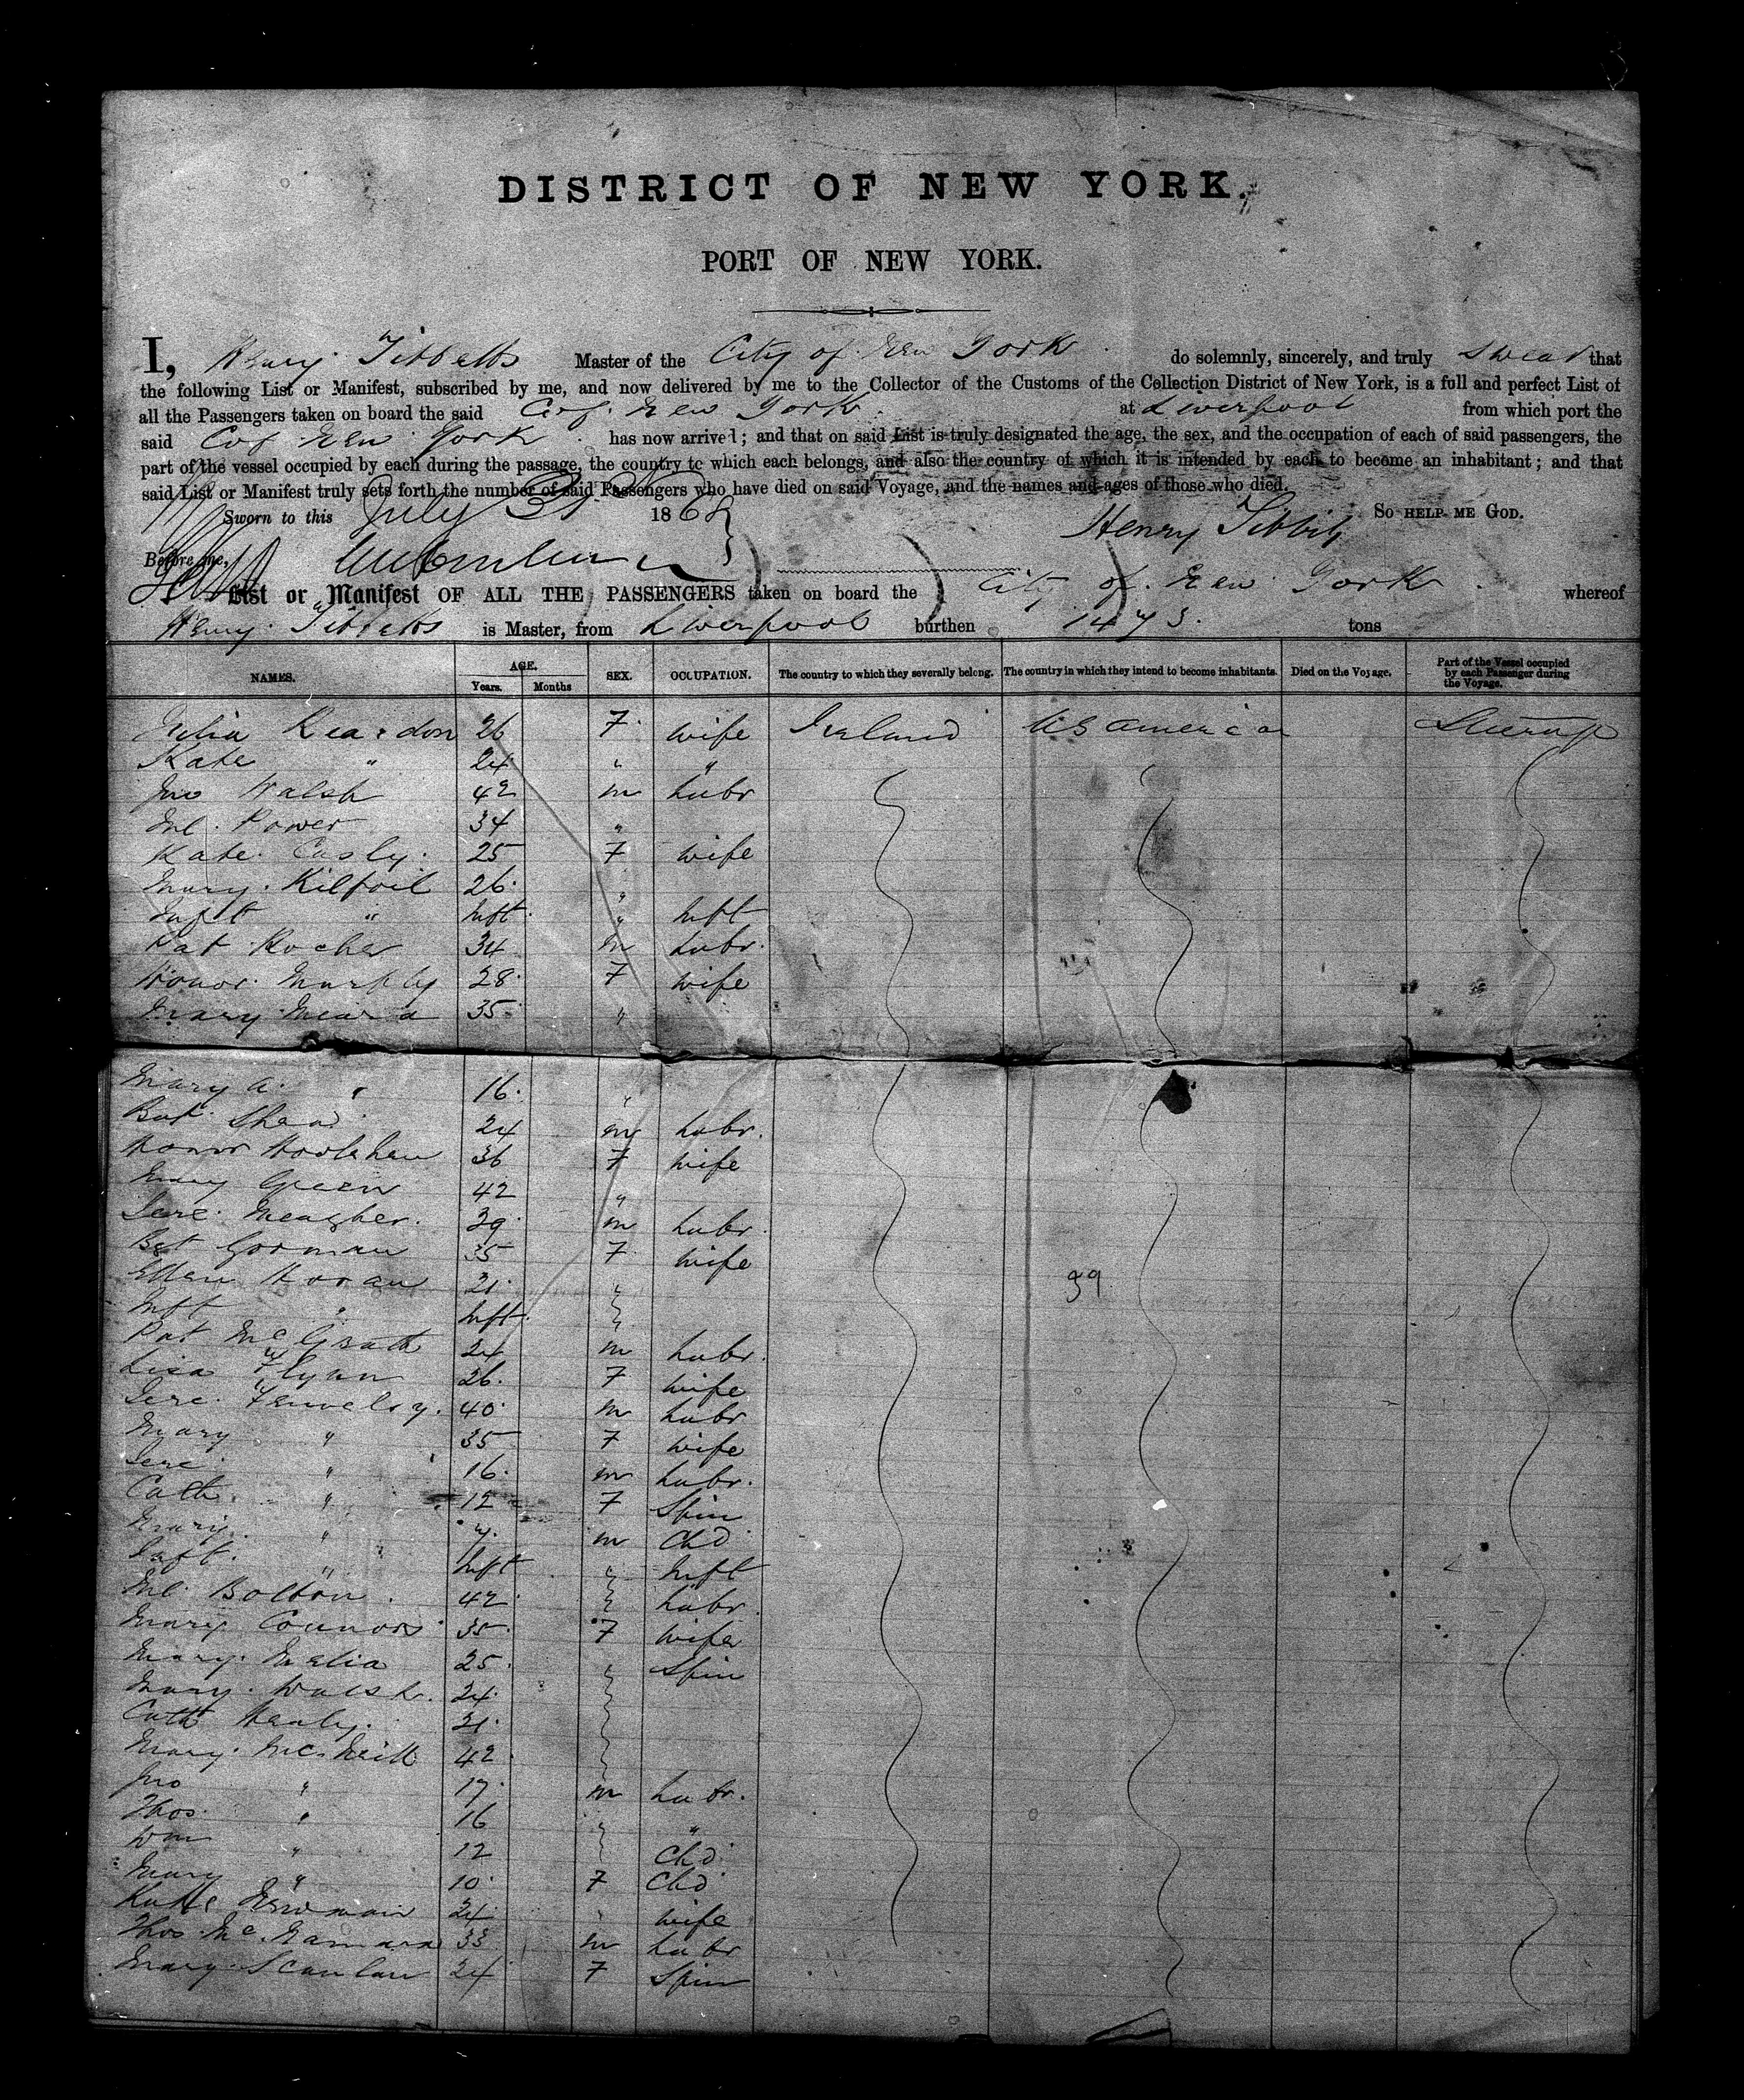 DISTRICT OF NEW YORK.
PORT OF NEW YORK.
I, Henry Tibbetts Master of the City of New York do solemnly, sincerely, and truly swear that
the following List or Manifest, subscribed by me, and now delivered by me to the Collector of the Customs of the Collection District of New York, is a full and perfect List of
all the Passengers taken on board the said C of New York at Liverpool from which port the
said C of New York has now arrived; and that on said List is truly designated the age, the sex, and the occupation of each of said passengers, the
part of the vessel occupied by each during the passage, the country to which each belongs, and also the country of which it is intended by each to become an inhabitant; and that
said List or Manifest truly sets forth the number of said Passengers who have died on said Voyage, and the names and ages of those who died.
So HELP ME GOD.
Sworn to this July 31 1868
Henry Tibbits
Before me,
List or Manifest OF ALL THE PASSENGERS taken on board the City of New York whereof
Henry Tibbetts is Master, from Liverpool burthen 1473 tons
NAMES. AGE. Years. Months SEX. OCCUPATION. The country to which they severally belong. The country in which they intend to become inhabitants. Died on the Voyage. Part of the Vessel occupied by each Passenger during the Voyage.
Julia Reardon 26 F wife Ireland US America Steerage
Kate " 24 " "
Jno Walsh 42 m Labr
Ml. Power 34 "
Kate Casly 25 F wife
Mary Kilfoil 26 "
Inft " Inft " Inft
Pat Rocher 34 m Labr.
Honor Murphy 28 F wife
Mary Meara 35 "
Mary A. " 16 "
Bat Shea 24 m Labr.
Honor Hoolahan 36 F wife
Mary Green 42 "
Jere Meagher 39 m Labr.
Bgt Gorman 35 F wife
Ellen Horan 21 "
Inft " Inft
Pat McGrath 24 m Labr.
Lisa Flynn 26 F wife
Jere 40 m Labr
Mary " 35 F wife
Jere " 16 m Labr.
Cath. " 12 F Spin
Mary " 7 m Chd
Inft. " Inft " Inft
Ml. Bolton 42 Labr.
Mary Connors 35 F wife
Mary Melia 25 " Spin
Mary Walsh 24
Cath Healy 21
Mary McNeill 42
Jno " 17 m Labr.
Thos " 16 " "
Wm " 12 Chd
Mary " 10 F Chd
Kate Newman 24 " wife
Thos McNamara 33 m Labr
Mary Scanlan 24 F Spin
39